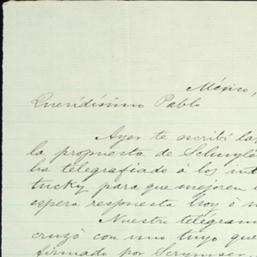 México,
Queridísimo Pablo
Ayer te escribí
la propuesta de
ha telegrafiado á los
tucky, para que mejoren
espera respuesta hoy ó
Nuestro telegrama
cruzó con uno tuyo que
firmado por Scrymser